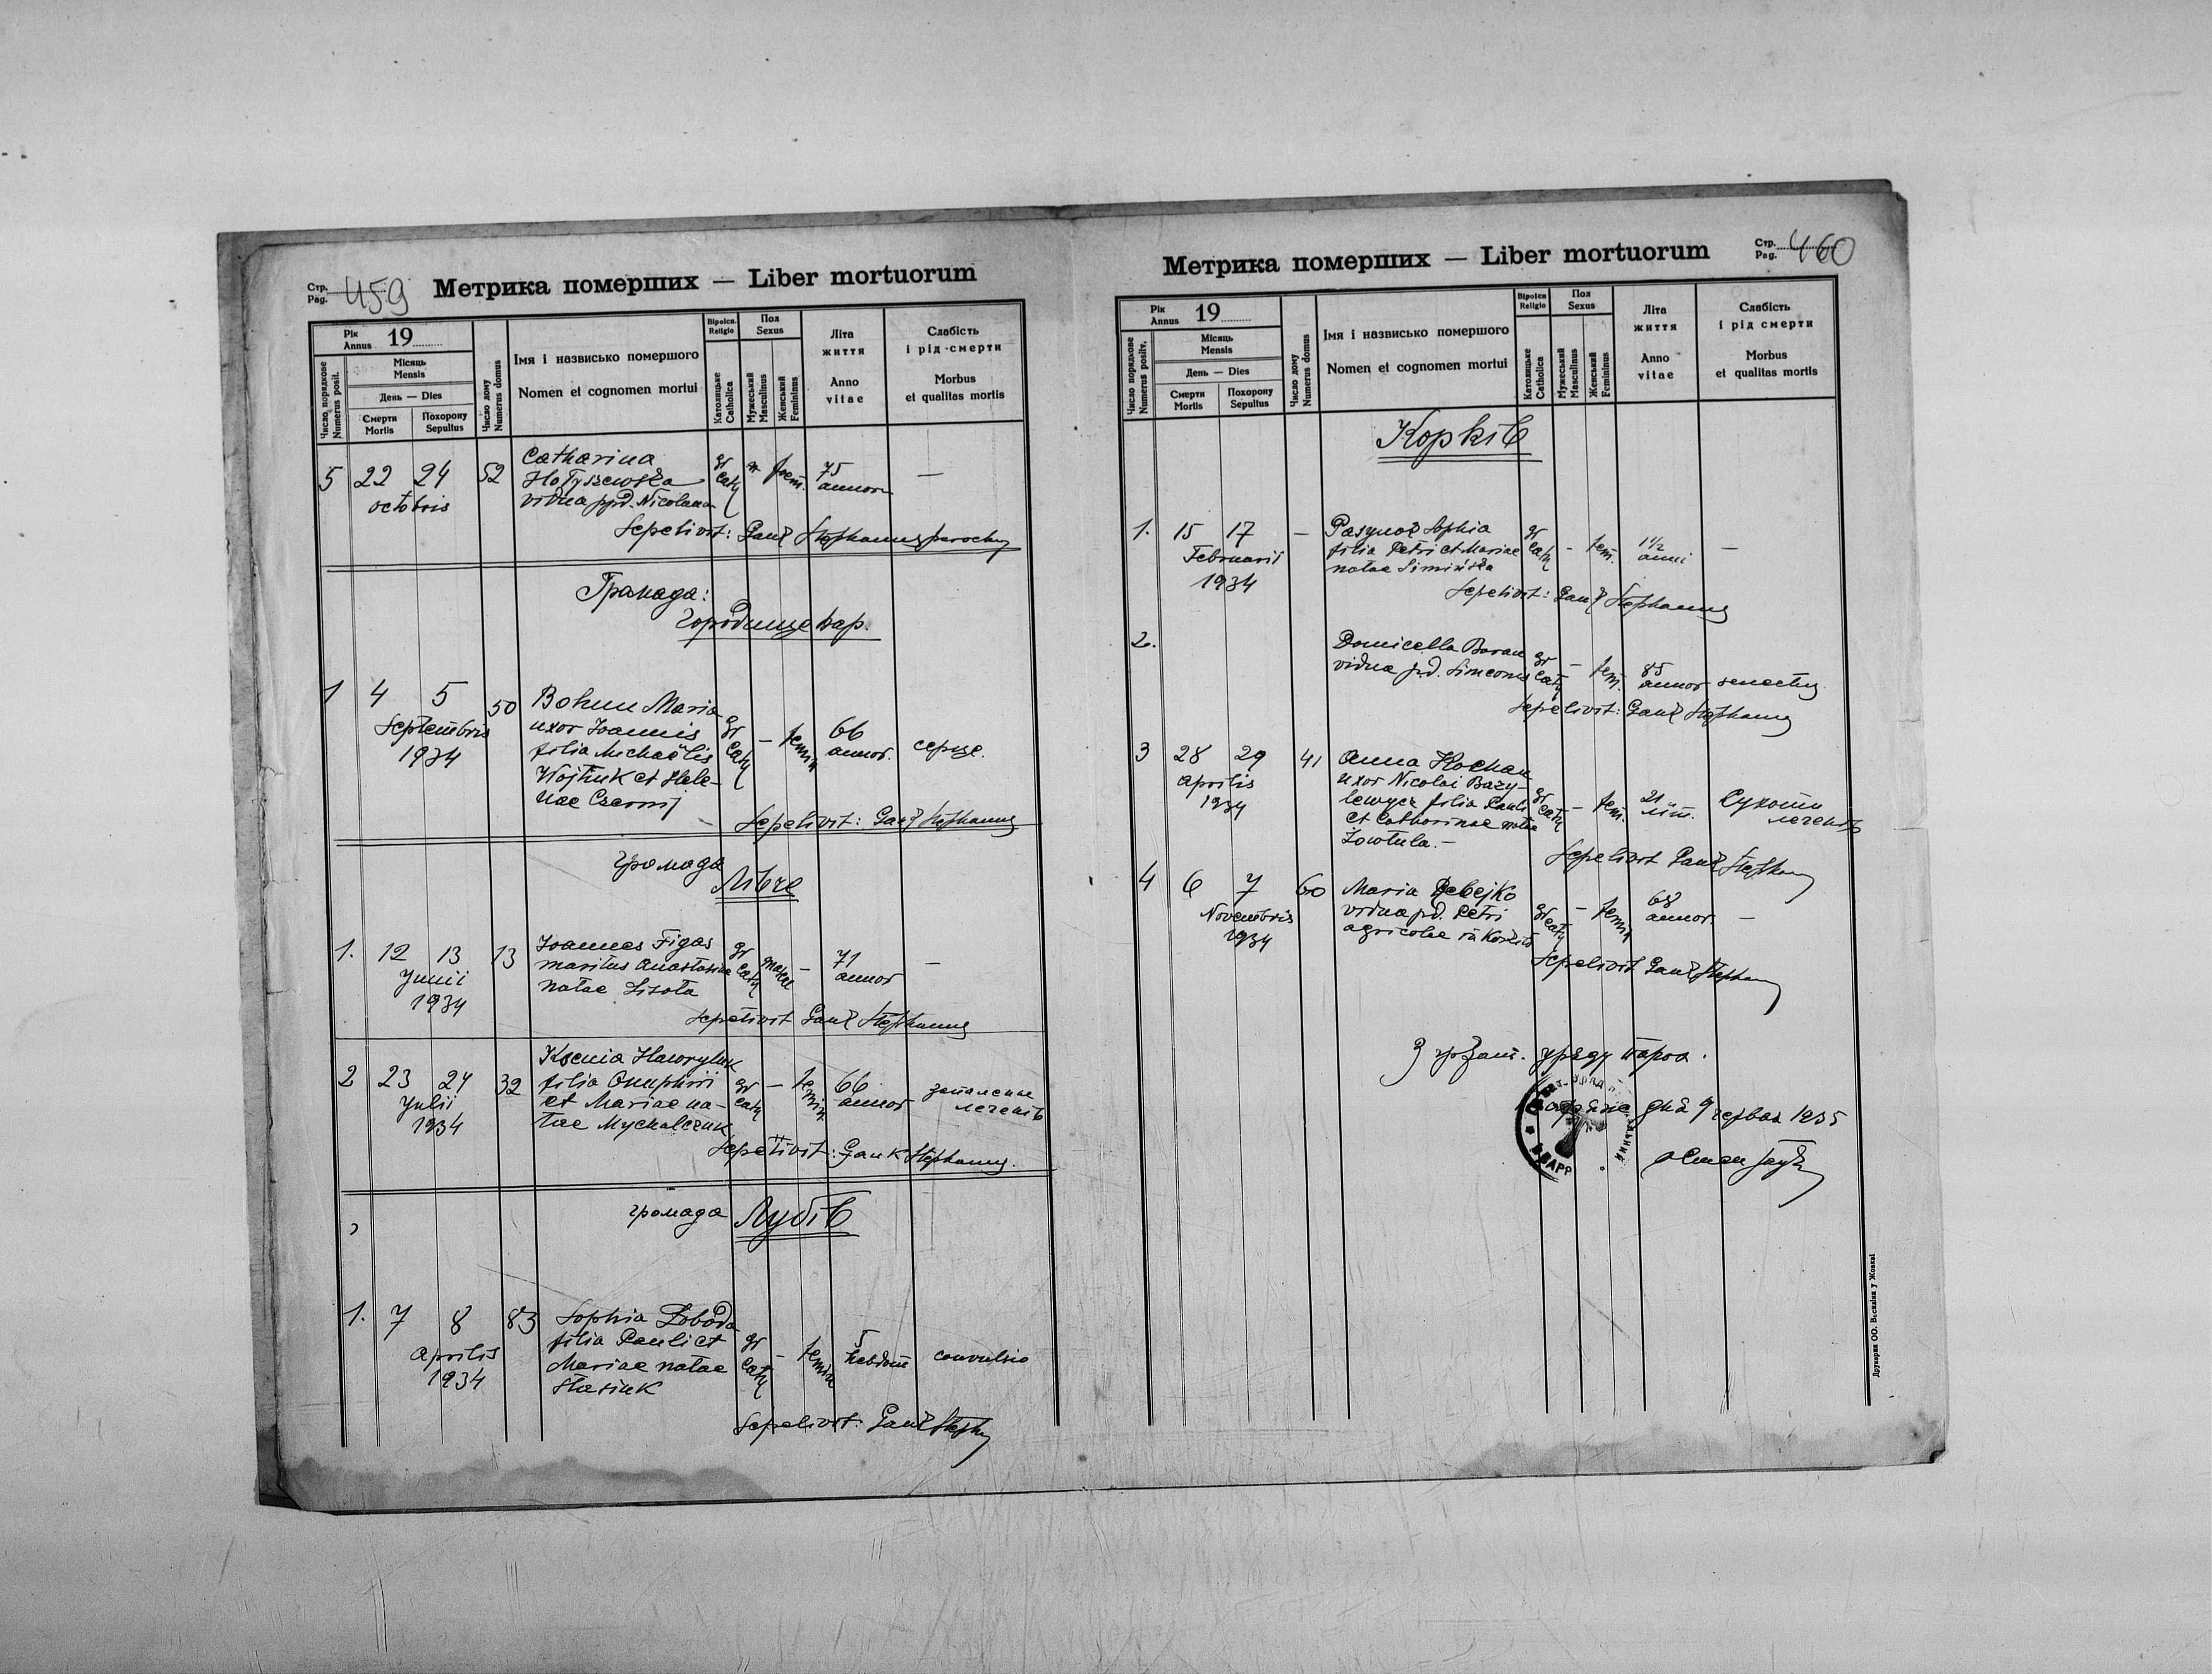 Стр. Pag. 459
Метрика померших — Liber mortuorum
Рік Annus 19
Число порядкове Numerus posit.
Місяць Mensis
День — Dies
Смерти Mortis
Похорону Sepultus
Число дому Numerus domus
Імя і назвисько помершого
Nomen et cognomen mortui
Віроісп. Religio
Католицьке Catholica
Пол Sexus
Мужеський Masculinus
Женський Femininus
Літа життя
Anno vitae
Слабість і рід смерти
Morbus et qualitas mortis
5 22 24 52 Catharina
octobris
vidua ppd. Nicolaua
gr cath foem. 75 annor —
Sepelivit: Gauk Stephanus parochus
Громада:
Городище вар.
1 4 5 50 Bohun Maria
Septembris uxor Joannis
1934 filia Michaëlis
Wojtiuk et Hele-
nae Czernij
gr cath — femin 66 annor. серце.
Sepelivit: Gauk Stephanus
громада
Лівче
1. 12 13 13 Joannes Figas
Junii maritus Anastasiae
1934 natae Lisota
gr cath mascu — 71 annor —
Sepelivit Gauk Stephanus
2 23 24 32 Ksenia Hawryluk
Julii filia Onuphrii
1934 et Mariae na-
tae Mychalczuk
gr cath — femin. 66 annor запалення легенів
Sepelivit: Gauk Stephanus.
громада Лубів
1. 7 8 83 Sophia Łoboda
Aprilis filia Pauli et
1934 Mariae natae
Stasiuk
gr cath — femin 5 hebdom convulsio
Sepelivit: Gauk Steph
Стр. Pag. 460
Метрика померших — Liber mortuorum
Рік Annus 19
Число порядкове Numerus positv.
Місяць Mensis
День — Dies
Смерти Mortis
Похорону Sepultus
Число дому Numerus domus
Імя і назвисько помершого
Nomen et cognomen mortui
Віроісп Religio
Католицьке Catholica
Пол Sexus
Мужеський Masculinus
Женський Femininus
Літа життя
Anno vitae
Слабість і рід смерти
Morbus et qualitas mortis
Корків
1. 15 17 — Pasynok Sophia
Februarii filia Petri et Mariae
1934 natae Simińska
gr cath — fem. 1 1/2 anni —
Sepelivit: Gauk Stephanus
2. Domicella Baran
vidua pd. Simeonis
gr cath — fem. 85 annor senectus
Sepelivit: Gauk Stephanus
3 28 29 41 Anna Kochan
Aprilis uxor Nicolai Bazy-
1934 lewycz filia Pauli
et Catharinae natae
Zowtula. —
gr cath — fem. 21 літ. Сухоти легенів
Sepelivit Gauk Stephan
4 6 7 60 Maria Rebejko
Novembris vidua pd. Petri
1934 agricolae in Korkiw
gr cath — femin 68 annor. —
Sepelivit Gauk Stephan
З гр. кат. уряду парох.
дня 9 червня 1935
Друкарня ОО. Василіян у Жовкві